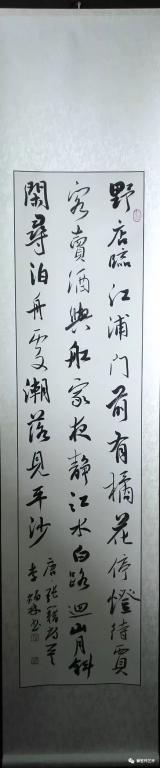 野店臨江浦門前有橘花停燈待賈
客賣酒與舡家夜靜江水白路迴山月斜
閑尋泊舟處潮落見平沙
唐張籍詩